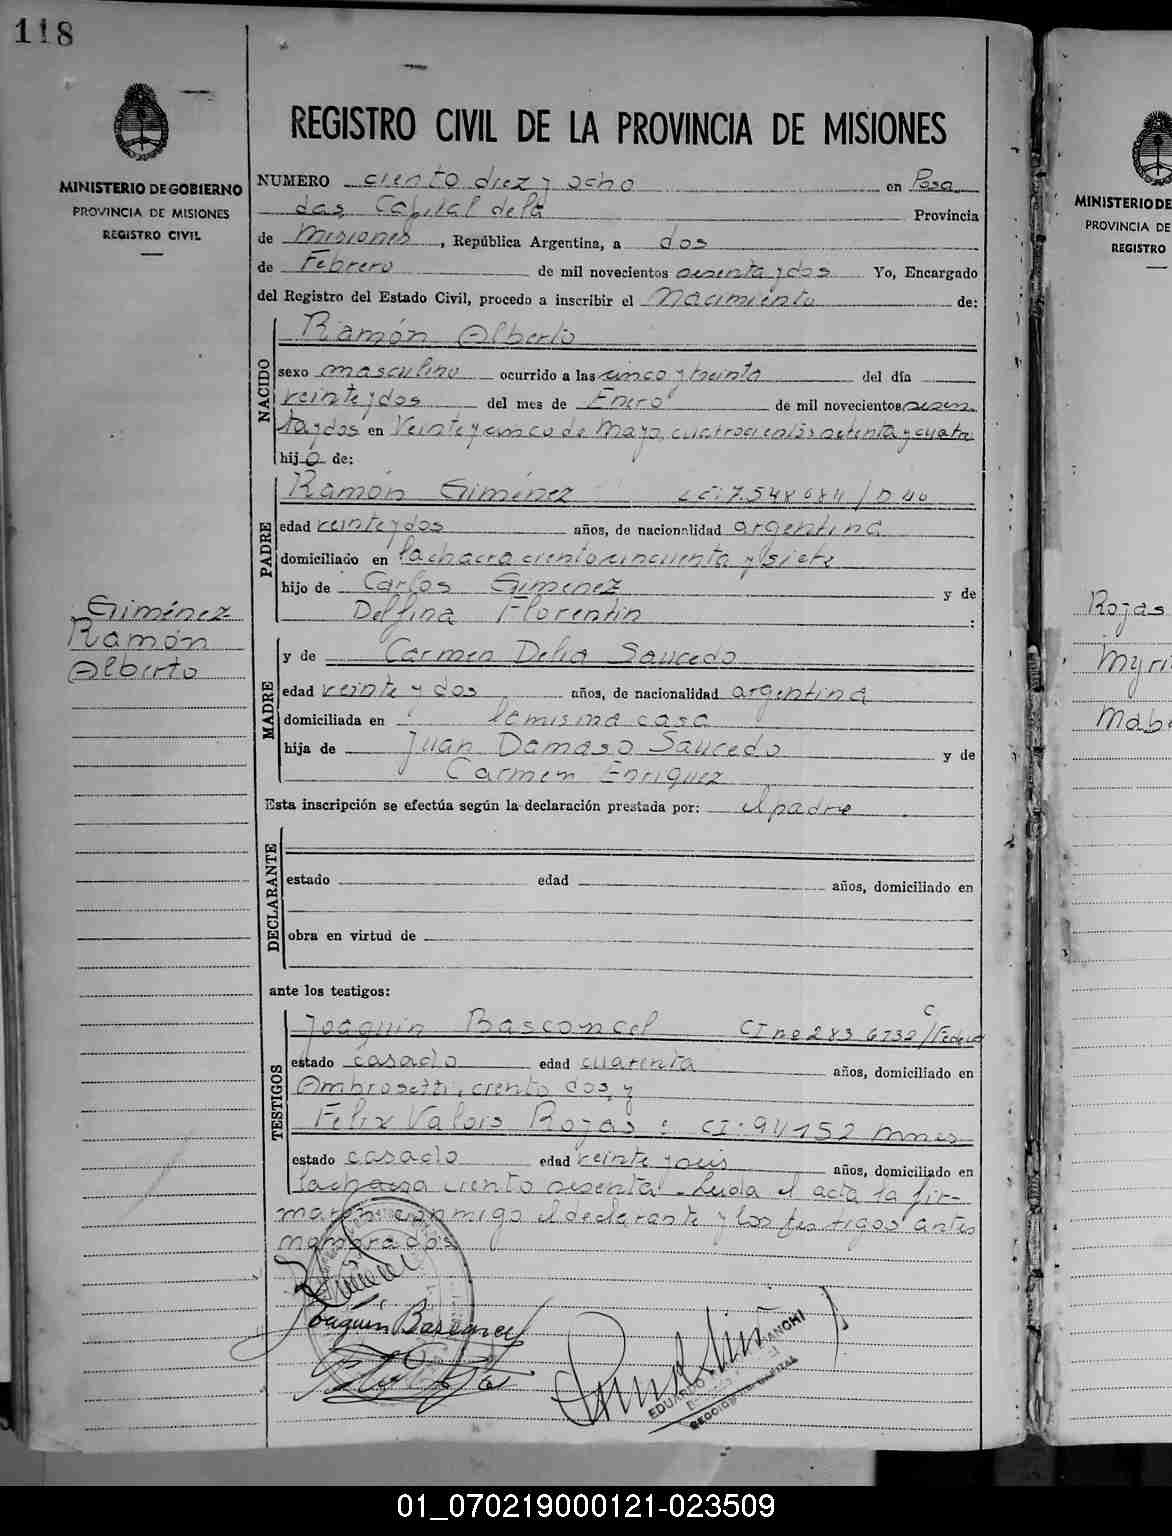 118
MINISTERIO DE GOBIERNO
PROVINCIA DE MISIONES
REGISTRO CIVIL
Giménez
Ramón
Alberto
REGISTRO CIVIL DE LA PROVINCIA DE MISIONES
NUMERO ciento diez y ocho en Posa
das Capital de la Provincia
de Misiones, República Argentina, a dos
de Febrero de mil novecientos sesenta y dos Yo, Encargado
del Registro del Estado Civil, procedo a inscribir el Nacimiento de:
NACIDO
Ramón Alberto
sexo masculino ocurrido a las cinco y treinta del día
veinte y dos del mes de Enero de mil novecientos sesen
ta y dos en Veinte y cinco de Mayo, cuatrocientos setenta y cuatro
hijo de:
PADRE
Ramón Giménez
edad veinte y dos años, de nacionalidad argentina
domiciliado en la chacra ciento cincuenta y siete
hijo de Carlos Gimenez y de
Delfina Florentin :
MADRE
y de Carmen Delia Saucedo
edad veinte y dos años, de nacionalidad argentina
domiciliada en la misma casa
hija de Juan Damaso Saucedo y de
Carmen Enriquez
Esta inscripción se efectúa según la declaración prestada por: el padre
DECLARANTE
estado edad años, domiciliado en
obra en virtud de
ante los testigos:
TESTIGOS
Joaquin Basconcel CI nº 283 6732/ C Federal
estado casado edad cuarenta años, domiciliado en
Ambrosetti, ciento dos, y
Felix Valois Rojas: CI: 94152 Mnes
estado casado edad veinte y seis años, domiciliado en
la chacra ciento sesenta. Leida el acta la fir-
maron conmigo el declarante y los testigos antes
nombrados
Joaquin Basconcel
EDUARDO
MINISTERIO DE
PROVINCIA DE
REGISTRO
Rojas
Myri
Mabe
01_070219000121-023509